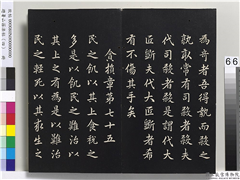 為奇者吾得執而殺之
孰敢常有司殺者殺夫
代司殺者殺是謂代大
匠斲夫代大匠斲者希
有不傷其手矣
貪損章第七十五
民之飢以其上食稅之
多是以飢民之難治以
其上之有為是以難治
民之輕死以其求生之
66